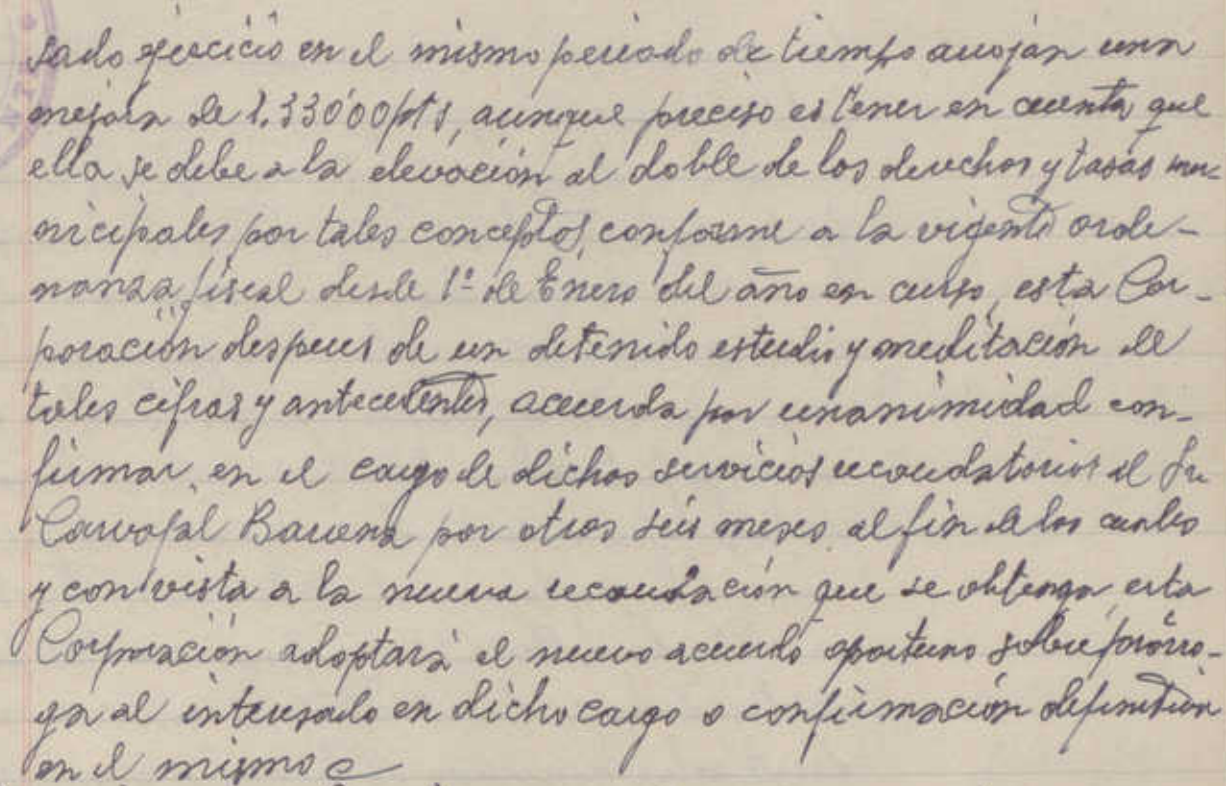 sado ejercicio en el mismo periodo de tiempo arrojan una
mejora de 1.330'00 pts, aunque preciso es tener en cuenta que
ella se debe a la elevación al doble de los derechos y tasas mu-
nicipales por tales conceptos, conforme a la vigente orde-
nanza fiscal desde 1º de Enero del año en curso, esta Cor-
poración despues de un detenido estudio y meditación de
tales cifras y antecedentes, acuerda por unanimidad con-
firmar, en el cargo de dichos servicios recaudatorios al Sr
Carvajal Barrena por otros seis meses al fin de los cuales
y con vista a la nueva recaudación que se obtenga, esta
Corporación adoptará el nuevo acuerdo oportuno sobre prórro-
ga al interesado en dicho cargo o confirmación definitiva
en el mismo